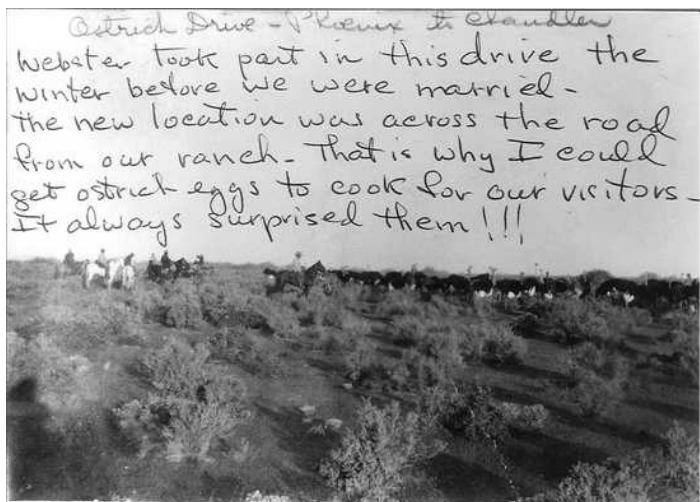 Ostrich Drive - Phoenix to Chandler
Webster took part in this drive the
winter before we were married -
the new location was across the road
from our ranch - That is why I could
get ostrich eggs to cook for our visitors -
It always surprised them!!!